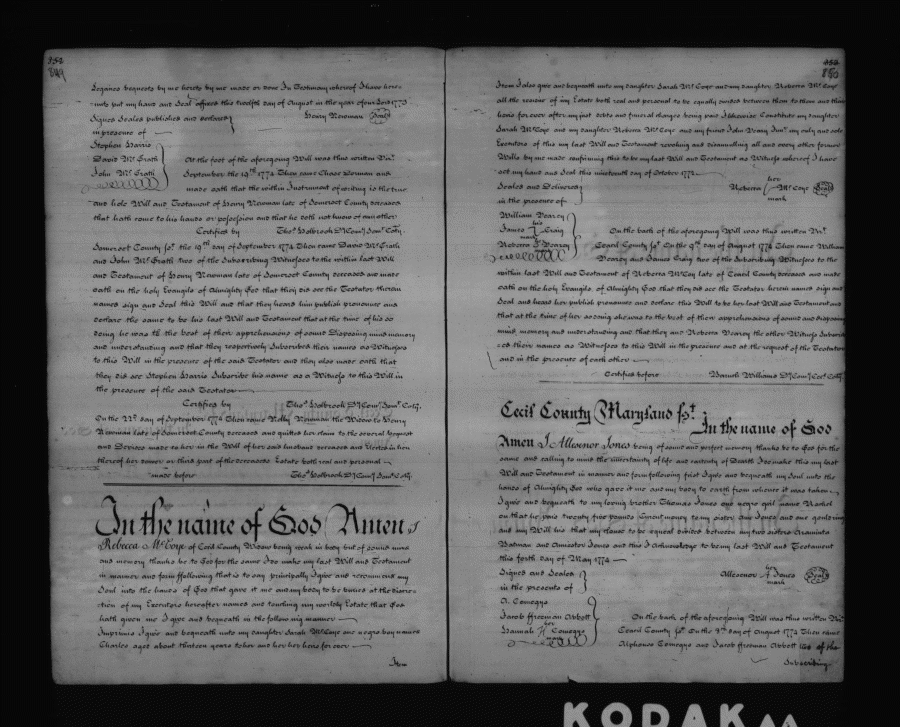 352
849
Legacies bequests by me hereto by me made or done In Testimony whereof I have here-
unto put my hand and Seal affixed this twelfth day of August in the year of our Lord 1773
Signed Sealed published and declared Henry Newman Seal
in presence of
Stephen Harris
David Mc. Grath At the foot of the aforegoing Will was thus written Vizt.
John Mc. Grath September the 19th 1774 Then came Chase Dorman and
made oath that the within Instrument of writing is the true
and hole Will and Testament of Henry Newman late of Somerset County deceased
that hath come to his hands or possession and that he doth not know of any other
Certified by Thos. Holbrook Dy Comy Somt. Coty.
Somerset County sct. the 19th day of September 1774 Then came David Mc. Grath
and John Mc. Grath two of the Subscribing Witnesses to the within last Will
and Testament of Henry Newman late of Somerset County deceased and made
oath on the holy Evangils of Almighty God that they did see the Testator therein
named sign and Seal this Will and that they heard him publish pronounce and
declare the same to be his last Will and Testament that at the time of his so
doing he was to the best of their apprehensions of sound Disposing mind memory
and understanding and that they respectively Subscribed their names as Witnesses
to this Will in the presence of the said Testator and they also made oath that
they did see Stephen Harris Subscribe his name as a Witness to this Will in
the presence of the said Testator
Certified by Thos. Holbrook Dy Comy Somt. Coty.
On the day of September 1774 Then came Nelly Newman the Widow to Henry
Newman late of Somerset County deceased and quitted her claim to the several bequest
and Devises made to her in the Will of her said husband deceased and Elected in lieu
thereof her dower or third part of the deceaseds Estate both real and personal
made before Thos. Holbrook Dy Comy Somt. Coty.
In the name of God Amen I
Rebecca McCoye of Cecil County Widow being weak in body but of sound mind
and memory thanks be to God for the same I do make my last Will and Testament
in manner and form following that is to say principally I give and recommend my
Soul into the hands of God that gave it me and my body to be buried at the discre-
tion of my Executors hereafter named and touching my worldly Estate that God
hath given me I give and bequeath in the following manner
Imprimis I give and bequeath unto my daughter Sarah McCoye one negro boy named
Charles aged about thirteen years to her and her heirs for ever
Item
353
850
Item I also give and bequeath unto my daughter Sarah McCoye and my daughter Rebecca McCoye
all the residue of my Estate both real and personal to be equally divided between them to them and their
heirs for ever after my just debts and funeral charges being paid I likewise Constitute my daughter
Sarah McCoye and my daughter Rebecca McCoye and my friend John Veazy Junr. my only and sole
Executors of this my last Will and Testament revoking and disannulling all and every other former
Wills by me made confirming this to be my last Will and Testament as Witness whereof I have
set my hand and Seal this nineteenth day of October 1772
her
Sealed and Delivered Rebecca McCoye Seal
mark
in the presence of
William Veazey
his
James Craig On the back of the aforegoing Will was thus written Vizt.
mark
Rebecca Veazey Ceacil County sct. On the 9th day of August 1774 Then came William
Veazey and James Craig two of the Subscribing Witnesses to the
within last Will and Testament of Rebecca McCoy late of Ceacil County deceased and made
oath on the holy Evangils of Almighty God that they did see the Testator herein named sign and
Seal and heard her publish pronounce and declare this Will to be her last Will and Testament and
that at the time of her so doing she was to the best of their apprehensions of sound and disposing
mind memory and understanding and that they and Rebecca Veazey the other Witness Subscrib
ed their names as Witnesses to this Will in the presence and at the request of the Testator
and in the presence of each other
Certified before Baruch Williams Dy Comy Cecl. Coty
Cecil County Maryland sst. In the name of God
Amen I Alleoenor Jones being of sound and perfect memory thanks be to God for the
same and calling to mind the uncertainty of life and certenty of Death I do make this my last
Will and Testament in manner and form following first I give and bequeath my Soul into the
hands of Almighty God who gave it me and my body to earth from whence it was taken
I give and bequeath to my loving brother Thomas Jones one negro girl named Rachel
on that he paid twenty five pounds Currt. money to my sister Ann Jones and one gold ring
and my Will his that my cloase to be equal divided between my two sisters Araminta
Bateman and Ann Jones and this I Acknowledge to be my last Will and Testament
this forth day of May 1774
Signed and Sealed her
Alleoenor A Jones Seal
in the presents of mark
A. Comegys
Jacob ffreeman Abbott On the back of the aforegoing Will was thus written Vizt.
her
Hannah H Comegys Ceacil County sct. On the 3d day of August 1774 Then came
Alphonso Comegys and Jacob ffreeman Abbott two of the
Subscribing
KODAK